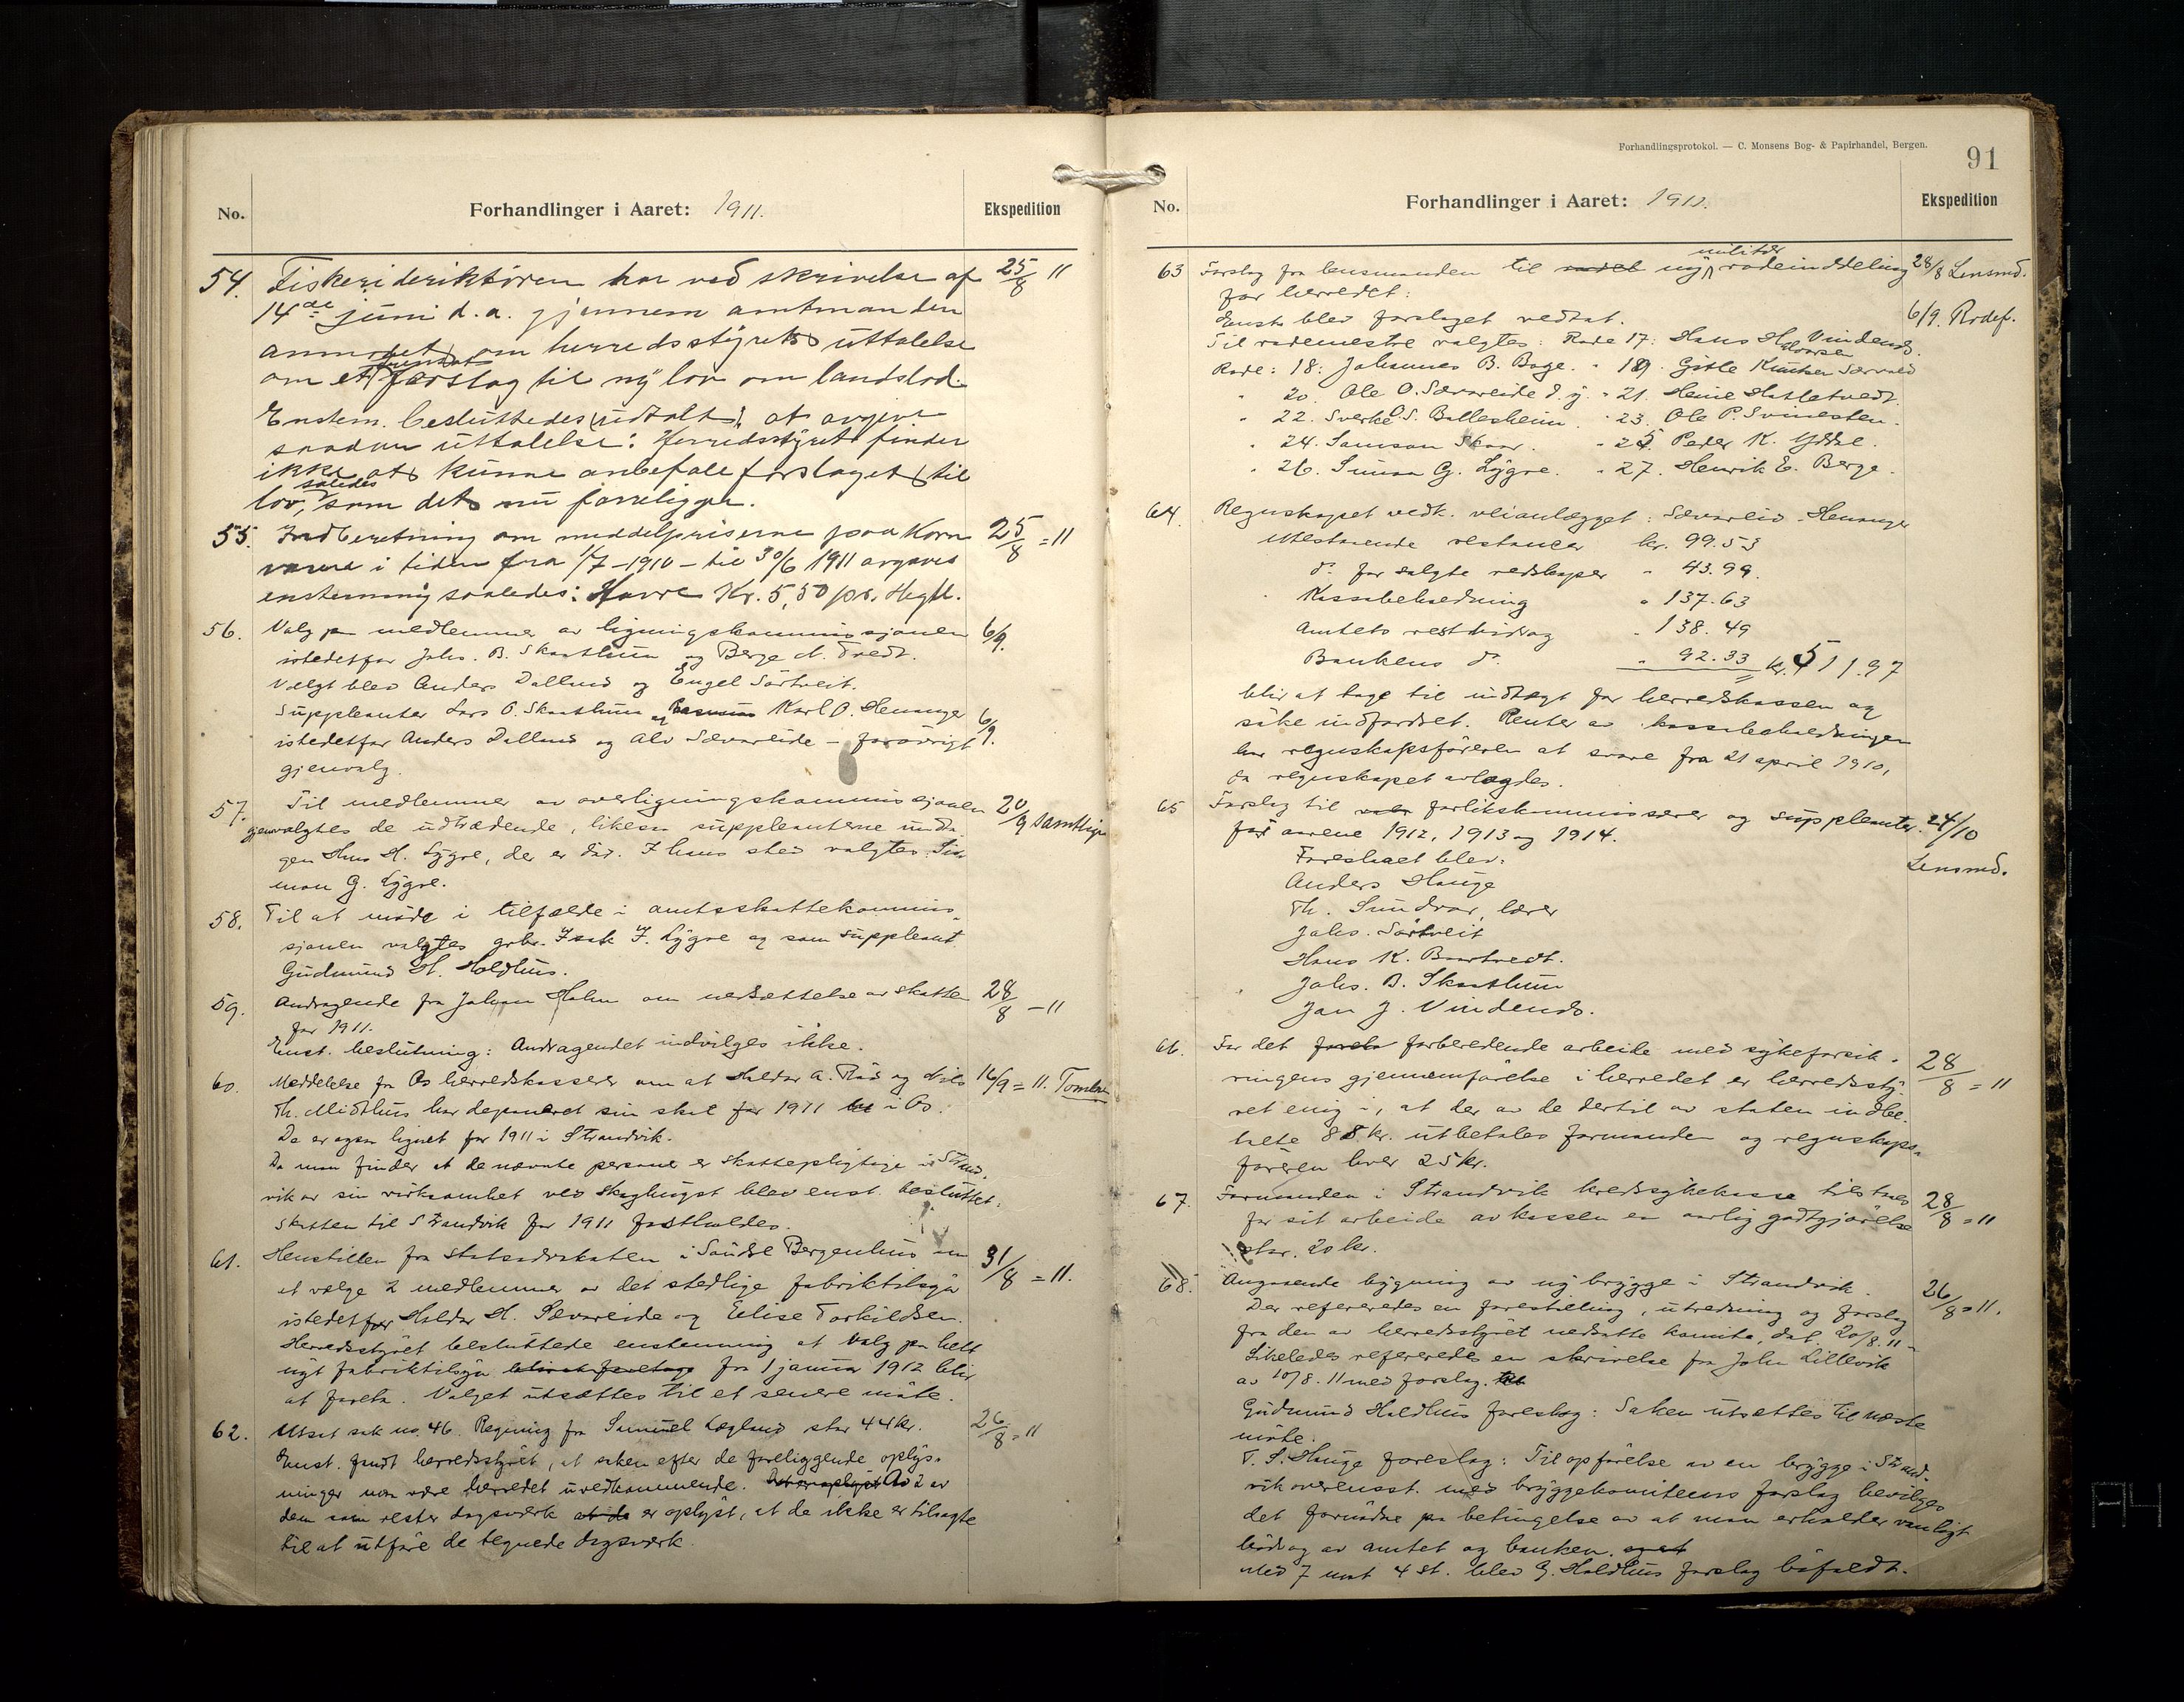 No.
Forhandlinger i Aaret: 1911.
Ekspedition
54. Fiskeridirektören har ved skrivelse af 25/8 11
14de juni d. a. gjennem amtmanden
anmodet om herredsstyrets uttalelse
om et forslag til ny lov om landslod.
Enstem. besluttedes (udtalt), at avgive
saadan uttalelse: Herredsstyret finder
ikke at kunne anbefale forslaget til
lov, saledes som det nu foreligger.
55. Indberetning om middelpriserne paa Korn 25/8 = 11
varer i tiden fra 1/7 - 1910 - til 30/6 1911 avgaves
enstemmig saaledes: Havre Kr. 5,50 pr. Hegtl.
56. Valg paa medlemmer av ligningskommissjonen 6/9.
istedetfor Johs. B. Skaathun og Berge N. Tvedt.
Valgt blev Anders Dalland og Engel Sörtveit.
Suppleanter Lars O. Skaathun og Karl O. Henanger 6/9.
istedetfor Anders Dalland og Alv Sævareide - forövrigt
gjenvalg.
57. Til medlemmer av overligningskommissjonen 20/9 samtlige
gjenvalgtes de udtrædende, likesaa suppleanterne undta-
gen Hans H. Lygre, der er död. I hans sted valgtes: Si-
mon G. Lygre.
58. Til at möde i tilfælde i amtsskattekommis-
sjonen valgtes grbr. Isak J. Lygre og som suppleant
Gudmund H. Holdhus.
59. Andragende fra Johan Holm om nedsættelse av skatten 28/8 - 11
for 1911.
Enst. beslutning: Andragendet indvilges ikke.
60. Meddelelse fra Os herredskasserer om at Haldor A. Röd og Nils 16/9 = 11. Tomlen
Th. Midthus har deponeret sin skat for 1911 i Os.
De er ogsaa lignet for 1911 i Strandvik.
Da man finder at de nævnte personer er skattepligtige i Strand-
vik av sin virksomhet ved skoghugst blev enst. besluttet:
Skatten til Strandvik for 1911 fastholdes.
61. Henstillen fra statsadvokaten i Söndre Bergenhus om 31/8 = 11.
at vælge 2 medlemmer av det stedlige fabriktilsyn
istedetfor Haldor H. Sævareide og Eilise Torkildsen.
Herredsstyret besluttede enstemmig at valg paa helt
nyt fabriktilsyn blir at foretage fra 1 januar 1912 blir
at foreta. Valget utsættes til et senere möte.
62. Utsat sak no. 46. Regning fra Samuel Legland stor 44 kr. 26/8 = 11
Enst. fandt herredsstyret, at saken efter de foreliggende oplys-
ninger maa være herredet uvedkommende. Det er oplyst As 2 av
dem som rester dagsverk at de er oplyst, at de ikke er tilsagte
til at utföre de tegnede dagsverk.
Forhandlingsprotokol. — C. Monsens Bog- & Papirhandel, Bergen.
91
No.
Forhandlinger i Aaret: 1911.
Ekspedition
63 Forslag fra lensmanden til ny militær rodeinddeling 28/8 Lensmd.
for herredet:
Enst. blev forslaget vedtat. 6/9. Rodef.
Til rodemestre valgtes: Rode 17: Hans H. Vindenes.
Rode: 18: Johannes B. Bage. " 19. Gitle Knutsen Særvold
" 20. Ole O. Sævareide d. y. " 21. Heine Hatletvedt.
" 22. Sverke S. Ballesheim. " 23. Ole P. Svinesten.
" 24. Samson Skaar. " 25 Peder K. Yddal.
" 26. Simon G. Lygre. " 27. Henrik E. Berge.
64. Regnskapet vedk. veianlægget: Sævareid - Henanger
Utestaaende restancer kr. 99.53
do. for solgte redskaper " 43.99.
Kassabeholdning " 137.63
Amtets restbidrag " 138.49
Bankens do. " 92.33 kr. 511.97
blir at tage til indtægt for herredskassen og
söke indfordret. Renter av kassabeholdningen
har regnskapsföreren at svare fra 21 april 1910,
da regnskapet avlagdes.
65 Forslag til forlikskommissærer og suppleanter. 24/10
for aarene 1912, 1913 og 1914.
Foreslaaet blev: Lensmd.
Anders Hauge
Th. Sundvor, lærer
Johs. Sörtveit
Hans K. Bortvedt.
Johs. B. Skaathun
Jan J. Vindenes.
66. For det forberedende arbeide med sykeforsik- 28/8 = 11
ringens gjennemförelse i herredet er herredssty-
ret enig i, at der av de dertil av staten indbe-
talte 88 kr. utbetales formanden og regnskaps-
föreren hver 25 kr.
67. Formanden i Strandvik kredssykekasse tilstaaes 28/8 = 11
for sit arbeide av kassen en aarlig godtgjörelse
stor. 20 kr.
68. Angaaende bygning av ny brygge i Strandvik. 26/8 = 11.
Der refereredes en forestilling, utredning og forslag
fra den av herredsstyret nedsatte komite, dat. 20/8. 11 -
Likeledes refereredes en skrivelse fra John Lillevik
av 10/8. 11 med forslag.
Gudmund Holdhus foreslog: Saken utsættes til næste
möte.
T. S. Hauge foreslog: Til opförelse av en brygge i Strand-
vik overensst. med bryggekomiteens forslag bevilges
det fornödne paa betingelse av at man erholder vanligt
bidrag av amtet og banken.
Med 7 mot 4 st. blev G. Holdhus forslag bifaldt.